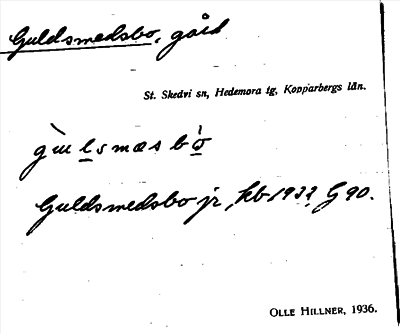 Guldsmedsbo, gård
St. Skedvi sn, Hedemora tg, Kopparbergs län.
Guldsmedsbo jr, kb 1932 G 90.
OLLE HILLNER, 1936.